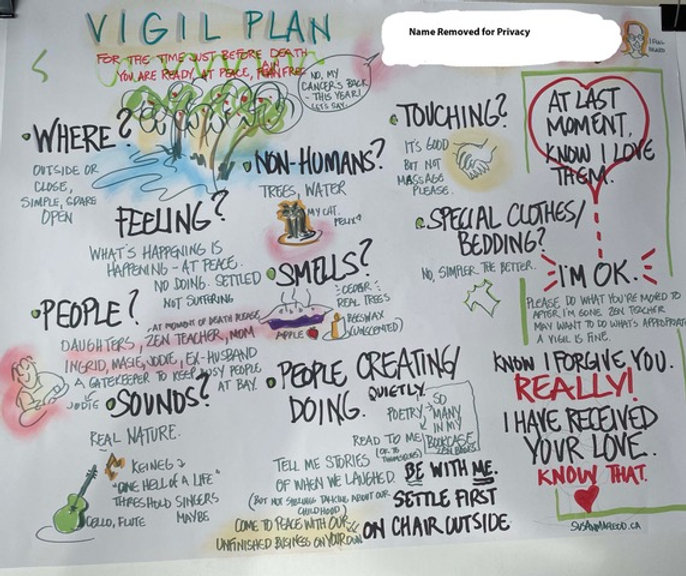 VIGIL PLAN
Name Removed for Privacy
I FEEL
HEARD
FOR THE TIME JUST BEFORE DEATH
YOU ARE READY, AT PEACE, PAIN FREE
NO, MY
CANCER'S BACK
- THIS YEAR!
LET'S SAY.
WHERE?
OUTSIDE OR
CLOSE,
SIMPLE, SPARE
OPEN
NON-HUMANS?
TREES, WATER
MY CAT.
FELIX
FEELING?
WHAT'S HAPPENING IS
HAPPENING - AT PEACE.
NO DOING. SETTLED
NOT SUFFERING
SMELLS?
CEDAR
REAL TREES
BEESWAX
(UNSCENTED)
APPLE
PEOPLE?
AT MOMENT OF DEATH PLEASE
DAUGHTERS, ZEN TEACHER, MOM
INGRID, MASIE, JODIE, EX-HUSBAND
A GATEKEEPER TO KEEP BUSY PEOPLE
AT BAY.
JODIE
SOUNDS?
REAL NATURE.
"ONE HELL OF A LIFE"
THRESHOLD SINGERS
MAYBE
CELLO, FLUTE
PEOPLE CREATING/
DOING.
QUIETLY.
POETRY → SO
MANY
IN MY
BOOKCASE
ZEN BOOKS
READ TO ME
(OR TO
THEMSELVES)
TELL ME STORIES
OF WHEN WE LAUGHED
(BUT NOT SIBLINGS TALKING ABOUT OUR
CHILDHOOD)
COME TO PEACE WITH OUR
UNFINISHED BUSINESS ON YOUR OWN
BE WITH ME.
SETTLE FIRST
ON CHAIR OUTSIDE
TOUCHING?
IT'S GOOD
BUT NOT
MASSAGE
PLEASE.
SPECIAL CLOTHES/
BEDDING?
NO, SIMPLER THE BETTER.
AT LAST
MOMENT,
KNOW I LOVE
THEM.
I'M OK.
PLEASE DO WHAT YOU'RE MOVED TO
AFTER I'M GONE. ZEN TEACHER
MAY WANT TO DO WHAT'S APPROPRIATE
A VIGIL IS FINE.
KNOW I FORGIVE YOU.
REALLY!
I HAVE RECEIVED
YOUR LOVE.
KNOW THAT.
SUSANMACLEOD.CA